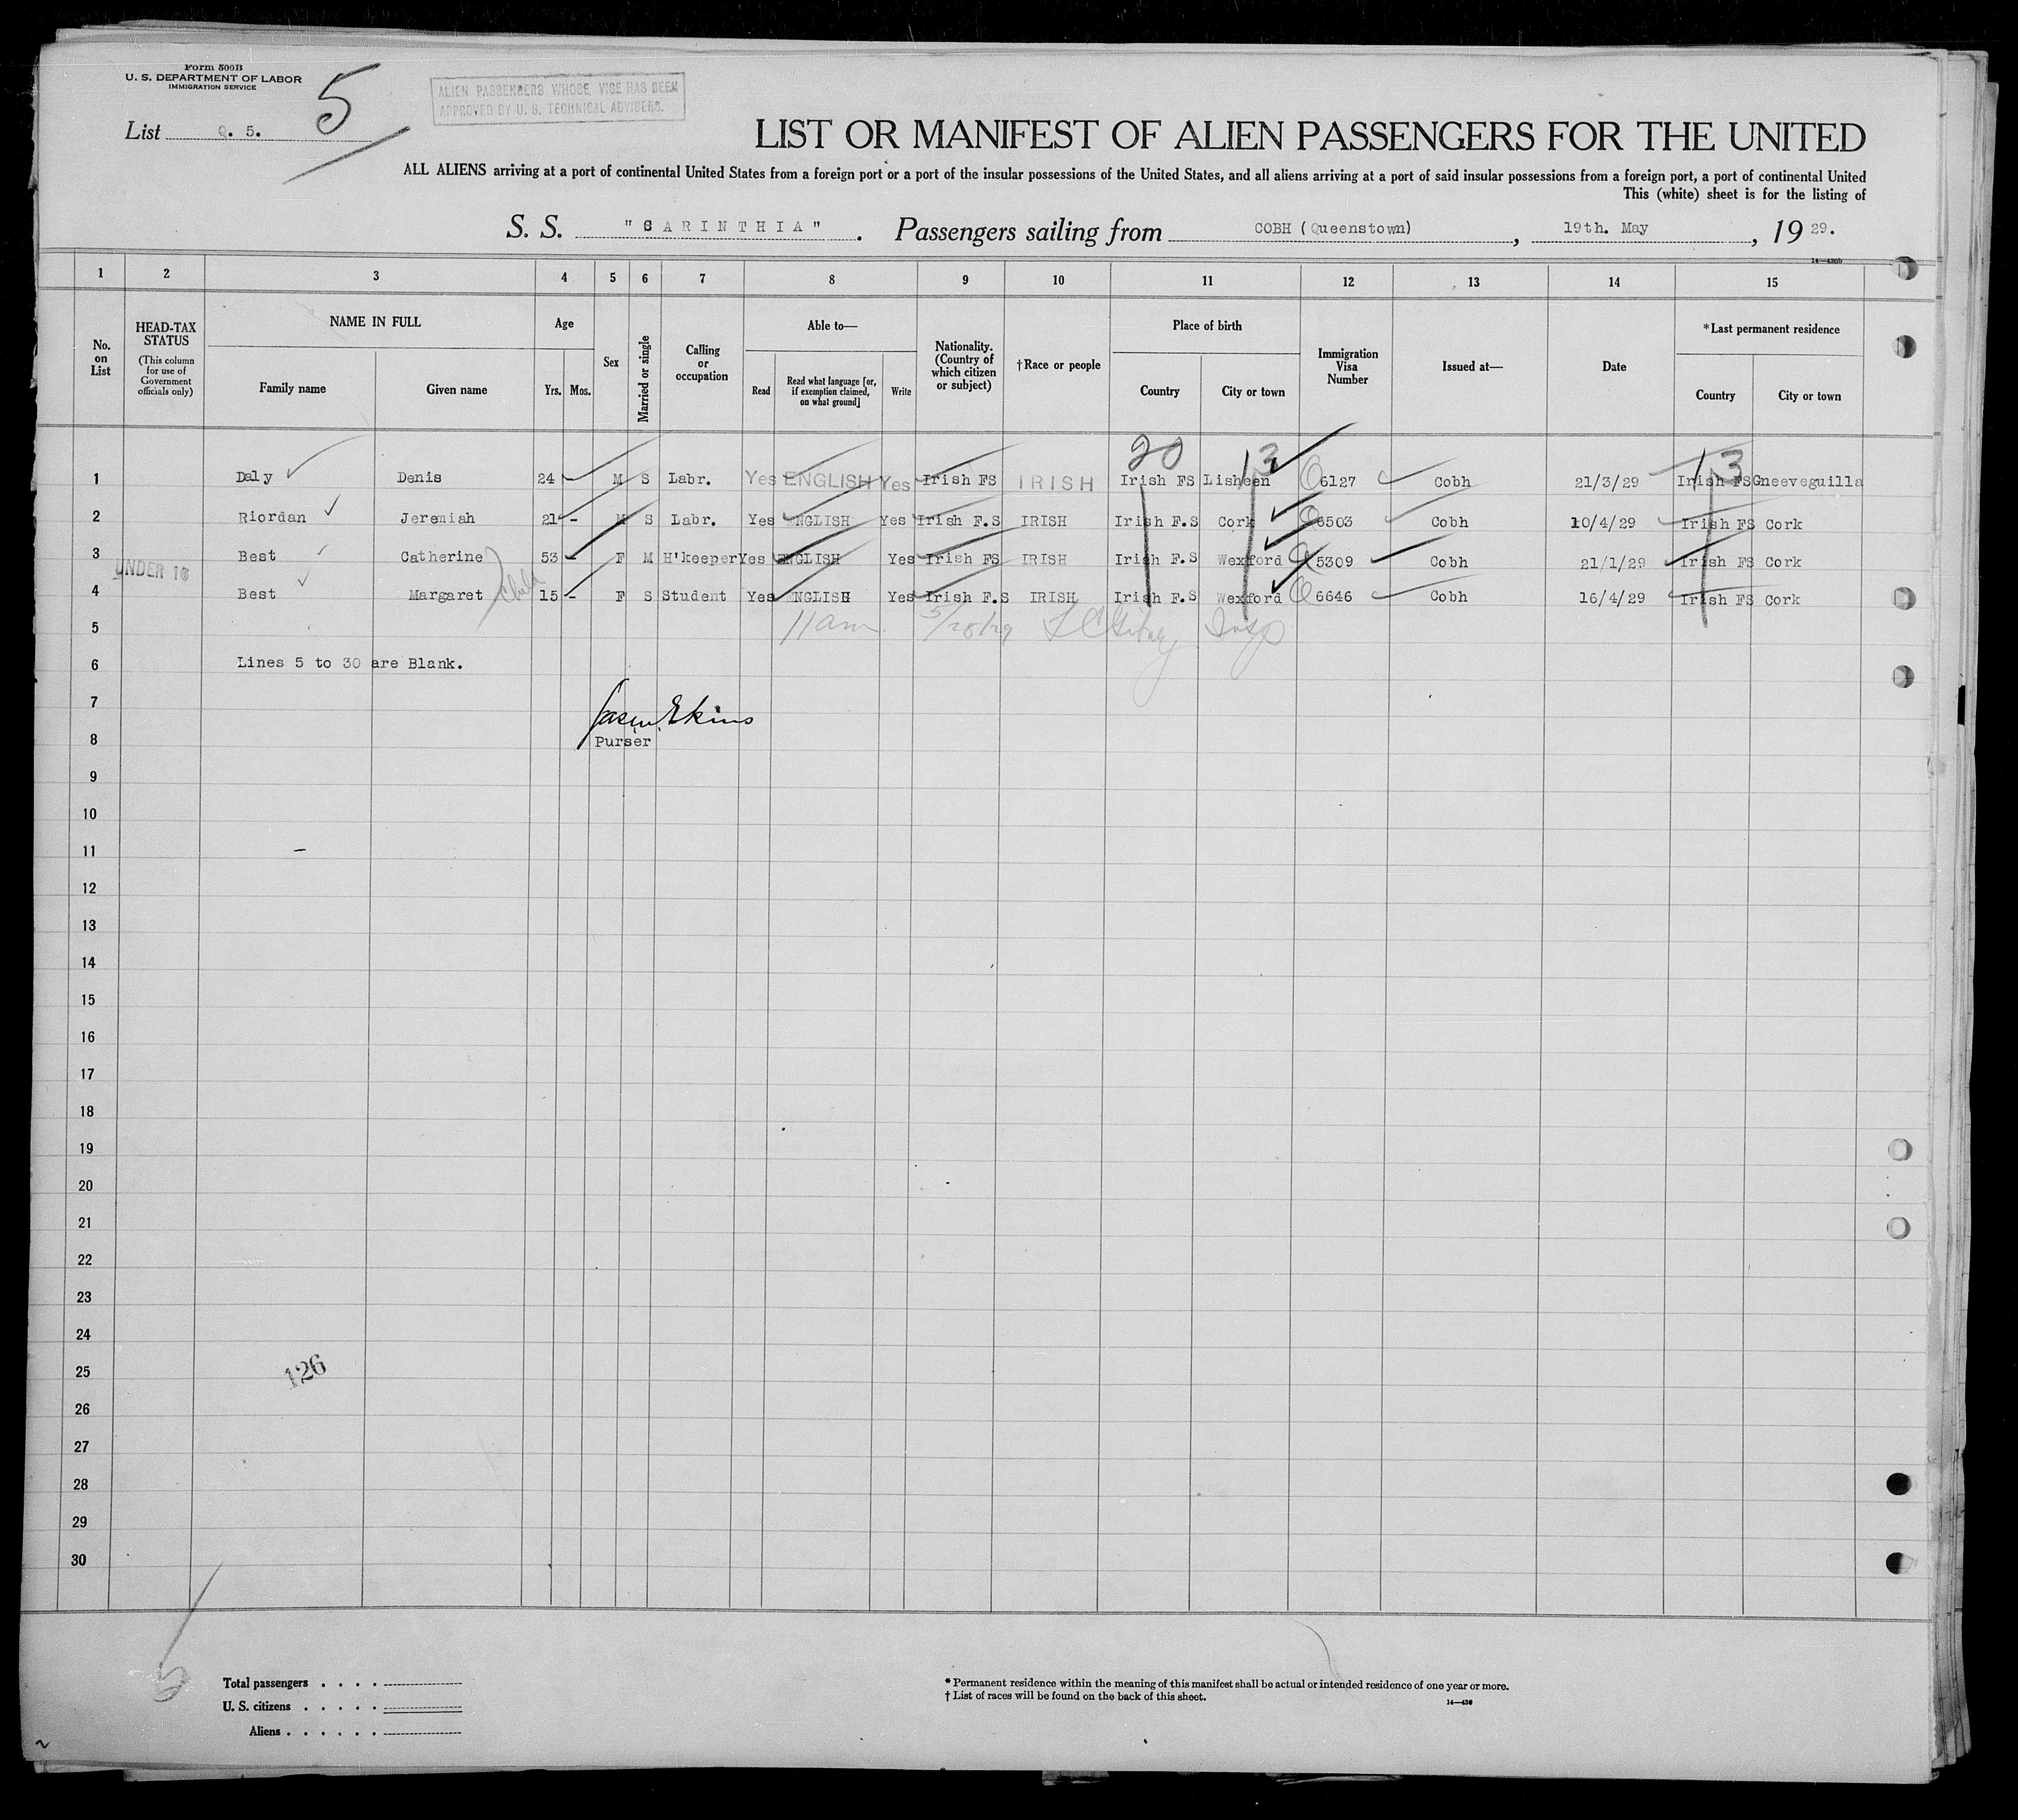 Form 500B
U. S. DEPARTMENT OF LABOR
IMMIGRATION SERVICE
5
ALIEN PASSENGERS WHOSE VISE HAS BEEN
APPROVED BY U. S. TECHNICAL ADVISERS.
List Q. 5.
LIST OR MANIFEST OF ALIEN PASSENGERS FOR THE UNITED
ALL ALIENS arriving at a port of continental United States from a foreign port or a port of the insular possessions of the United States, and all aliens arriving at a port of said insular possessions from a foreign port, a port of continental United
This (white) sheet is for the listing of
S. S. "CARINTHIA". Passengers sailing from COBH (Queenstown), 19th. May, 1929.
14—430b
1 2 3 4 5 6 7 8 9 10 11 12 13 14 15
No. on List
HEAD-TAX STATUS (This column for use of Government officials only)
NAME IN FULL Family name Given name
Age Yrs. Mos.
Sex
Married or single
Calling or occupation
Able to— Read Read what language [or, if exemption claimed, on what ground] Write
Nationality. (Country of which citizen or subject)
†Race or people
Place of birth Country City or town
Immigration Visa Number
Issued at—
Date
*Last permanent residence Country City or town
20 13 13
1 Daly Denis 24 M S Labr. Yes ENGLISH Yes Irish FS IRISH Irish FS Lisheen Q6127 Cobh 21/3/29 Irish FS Gneeveguilla
2 Riordan Jeremiah 21 - M S Labr. Yes ENGLISH Yes Irish F.S IRISH Irish F.S Cork Q6503 Cobh 10/4/29 Irish FS Cork
3 Best Catherine 53 - F M H'keeper Yes ENGLISH Yes Irish FS IRISH Irish F.S Wexford Q5309 Cobh 21/1/29 Irish FS Cork
UNDER 16
4 Best Margaret child 15 - F S Student Yes ENGLISH Yes Irish F.S IRISH Irish F.S Wexford Q6646 Cobh 16/4/29 Irish FS Cork
5 11am 5/28/29 Insp
6 Lines 5 to 30 are Blank.
7 Ekins
8 Purser
9
10
11
12
13
14
15
16
17
18
19
20
21
22
23
24
25 126
26
27
28
29
30
5
Total passengers
U. S. citizens
Aliens
* Permanent residence within the meaning of this manifest shall be actual or intended residence of one year or more.
† List of races will be found on the back of this sheet.
14—430